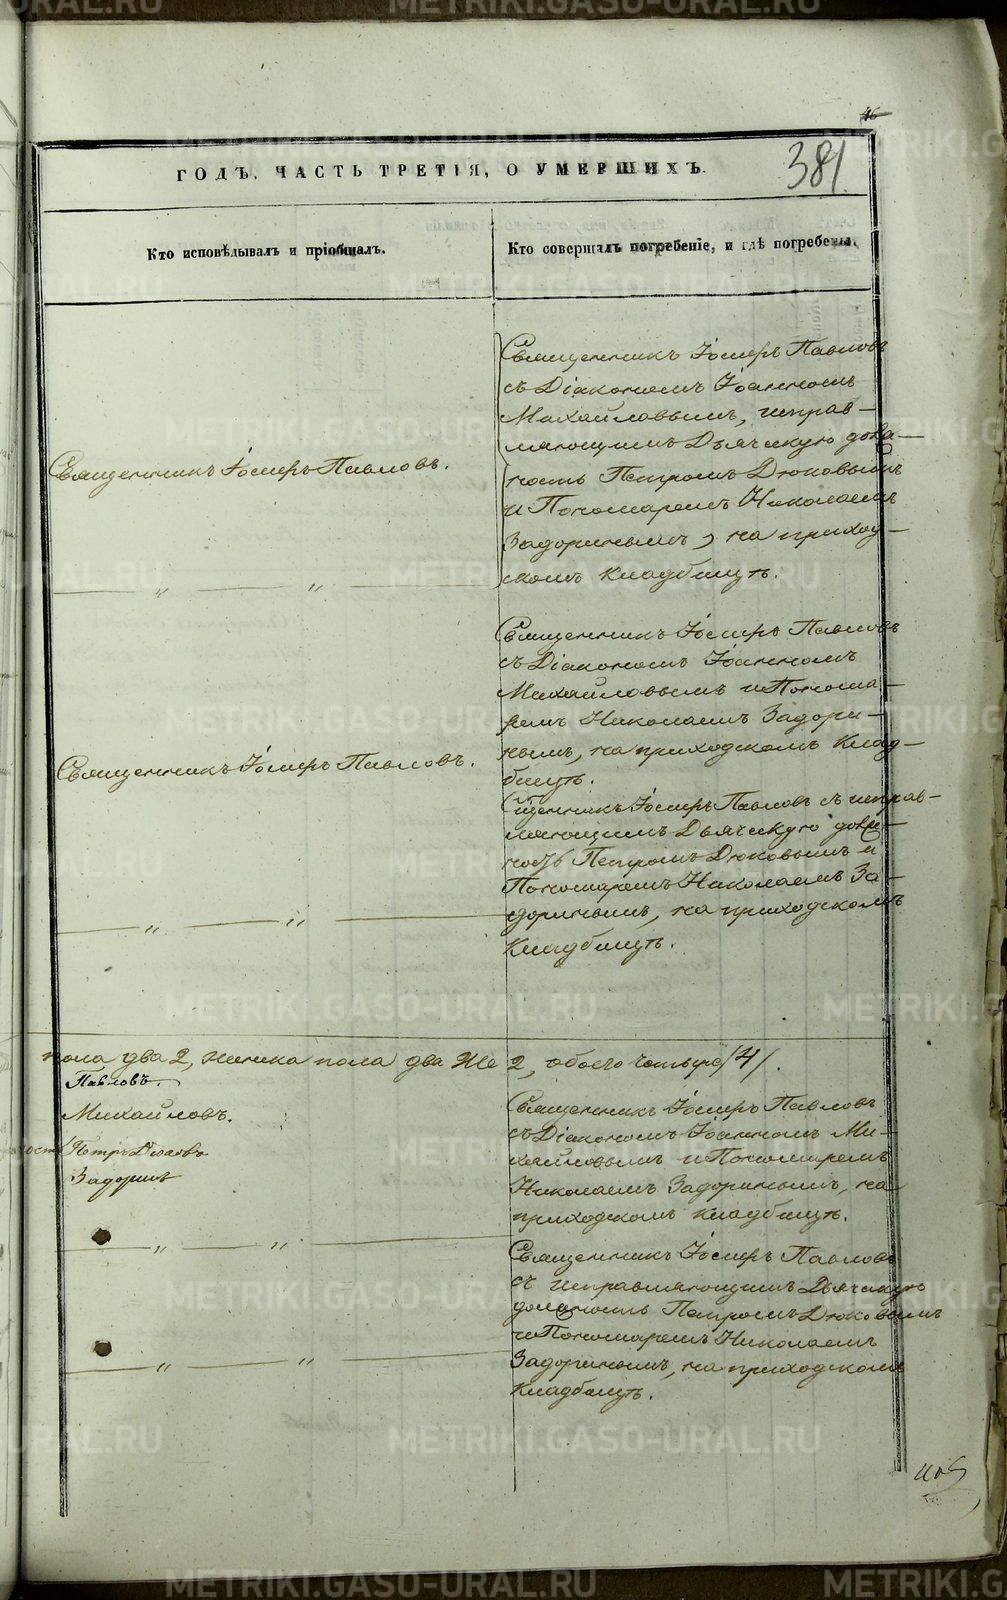 46
381.
ГОДЪ, ЧАСТЬ ТРЕТІЯ, О УМЕРШИХЪ.
Кто исповѣдывалъ и пріобщалъ.
Кто совершалъ погребеніе, и гдѣ погребены.
Священникъ Іосифъ Павловъ.
— „ — „ —
Священникъ Іосифъ Павловъ
съ Діакономъ Іоанномъ
Михайловымъ, исправ-
ляющимъ Дьяческую долж-
ность Петромъ Дюковымъ
и Пономаремъ Николаемъ
Задоринымъ, на приход-
скомъ кладбищѣ.
Священникъ Іосифъ Павловъ.
Священникъ Іосифъ Павловъ
съ Діакономъ Іоанномъ
Михайловымъ и Понома-
ремъ Николаемъ Задори-
нымъ, на приходскомъ клад-
бищѣ.
— „ — „ —
Сщенникъ Іосифъ Павловъ съ исправ-
ляющимъ Дьяческую долж-
ность Петромъ Дюковымъ и
Пономаремъ Николаемъ За-
доринымъ, на приходскомъ
кладбищѣ.
пола два 2, женска пола два же 2, обоего четыре /4/.
Павловъ.
Михайловъ.
Петръ Дюковъ
Задоринъ
— „ — „ —
Священникъ Іосифъ Павловъ
съ Діакономъ Іоанномъ Ми-
хайловымъ и Пономаремъ
Николаемъ Задоринымъ, на
приходскомъ кладбищѣ.
— „ — „ —
Священникъ Іосифъ Павловъ
съ исправляющимъ Дьяческую
должность Петромъ Дюковымъ
и Пономаремъ Николаемъ
Задоринымъ, на приходскомъ
кладбищѣ.
METRIKI.GASO-URAL.RU